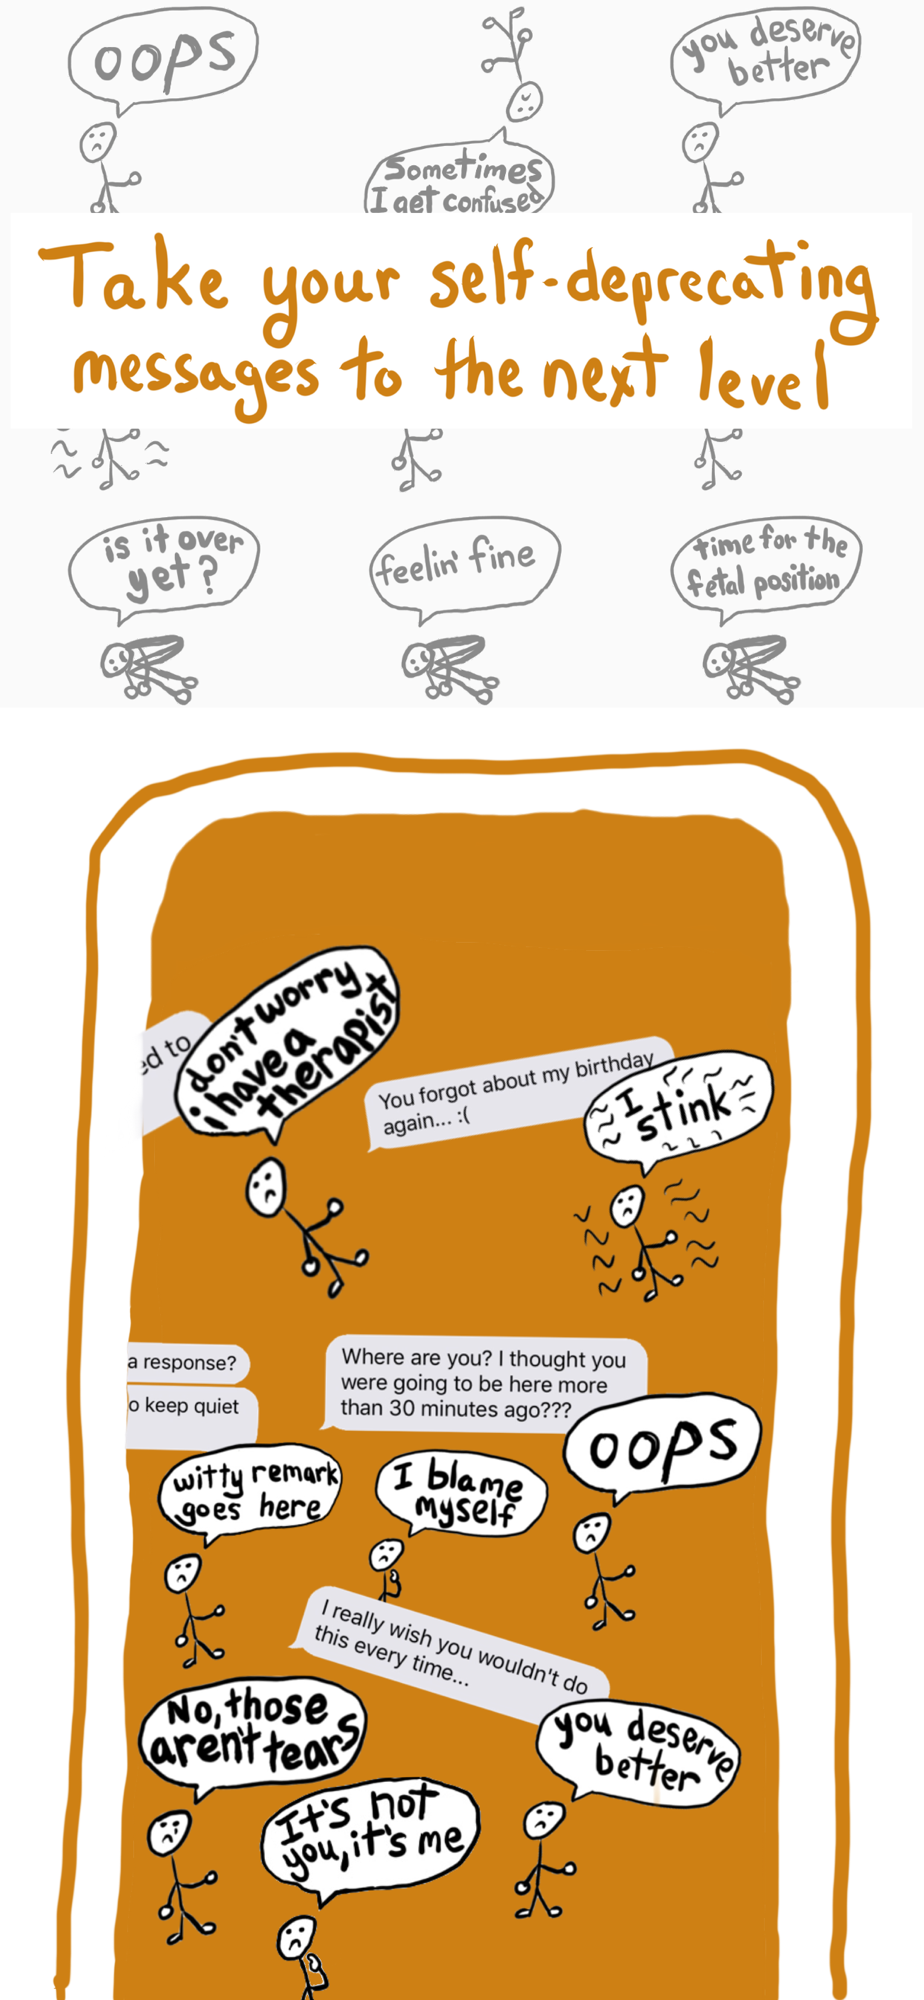 oops
you deserve
better
Sometimes
I get confused
Take your self-deprecating
messages to the next level
is it over
yet?
feelin' fine
time for the
fetal position
don't worry
i have a
therapist
ed to
You forgot about my birthday
again... :(
I
stink
a response?
o keep quiet
Where are you? I thought you
were going to be here more
than 30 minutes ago???
oops
witty remark
goes here
I blame
myself
I really wish you wouldn't do
this every time...
No, those
aren't tears
you deserve
better
It's not
you, it's me